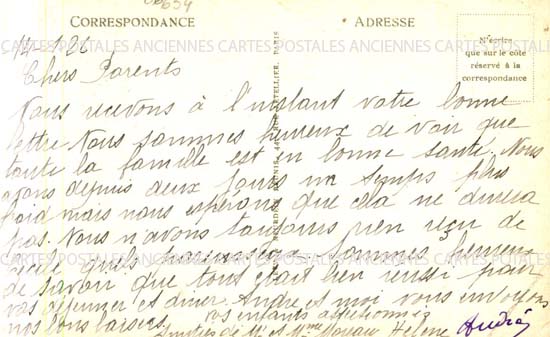 CORRESPONDANCE
ADRESSE
N'écrire
que sur le côté
réservé à la
correspondance
CARTES POSTALES ANCIENNES CARTES POSTALES ANCIENNES CARTES POSTALES
14-1-26
Chers Parents
Nous recevons à l'instant votre bonne
lettre Nous sommes heureux de voir que
toute la famille est en bonne santé. Nous
avons depuis deux jours un temps plus
froid mais nous espérons que cela ne durera
pas. Nous n'avons toujours rien reçu de
sommes heureux
de savoir que tout était bien réussi pour
vos déjeuner et diner. André et moi vous envoyons
nos bons baisers. vos enfants affectionnés
Amitiés de Mr et Mme Moreau Hélène André